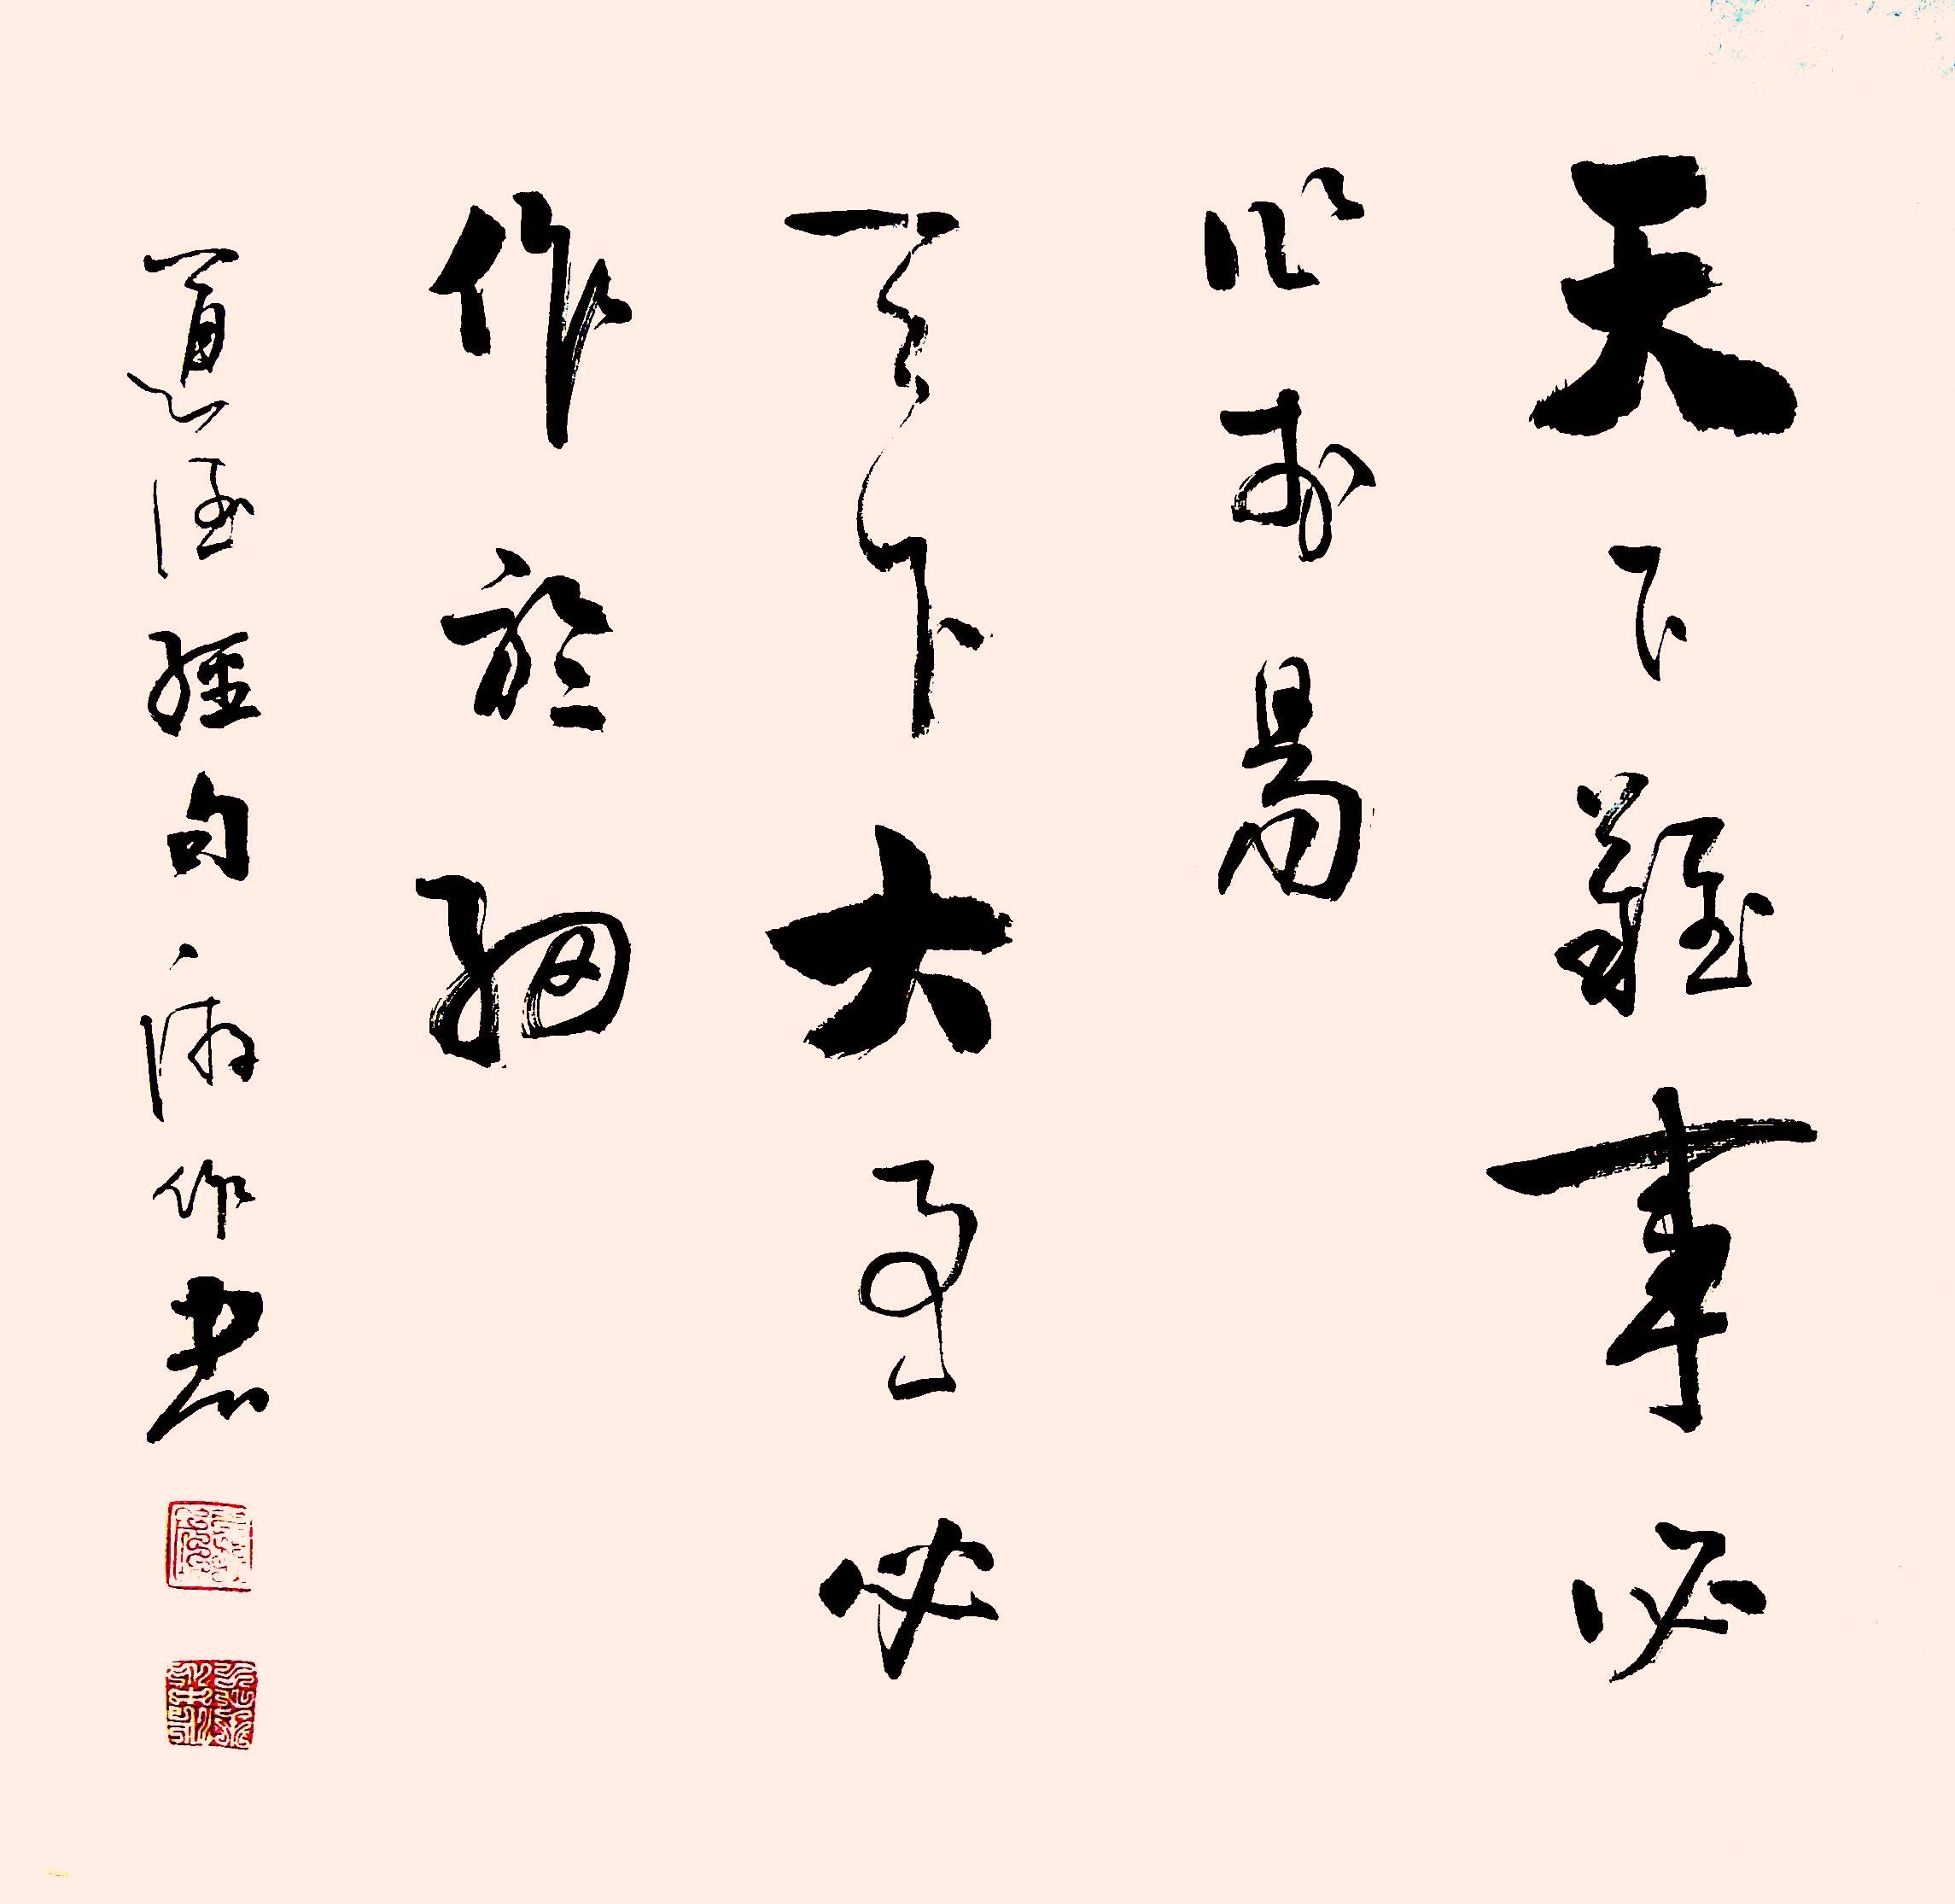 天下難事必
作於易
天下大事必
作於細
道德經句
作書